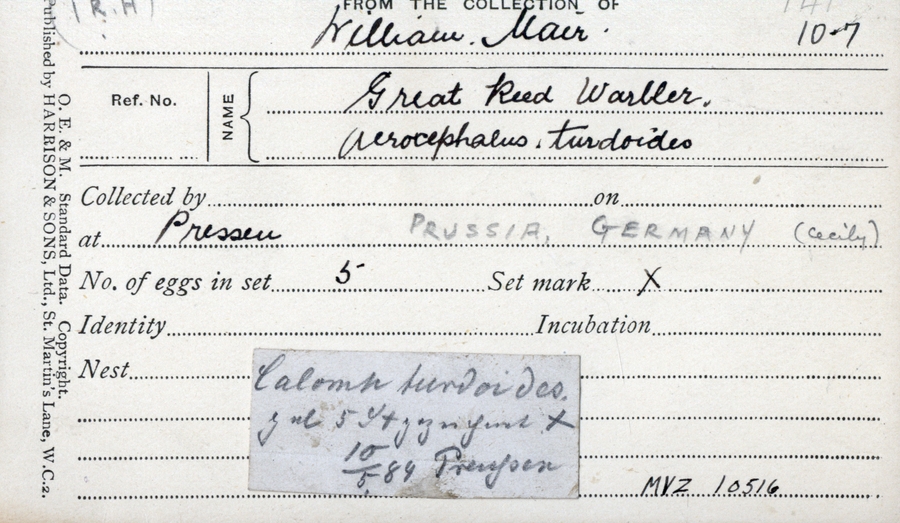 (R.H)
FROM THE COLLECTION OF
141
William. Mair.
10-7
Ref. No.
NAME
Great Reed Warbler.
Acrocephalus. turdoides
Collected by on
at Pressen PRUSSIA, GERMANY (Cecily)
No. of eggs in set 5 Set mark X
Identity Incubation
Nest
Calomh turdoides.
5 St X
10/5 84 Preußen
MVZ 10516
O. E. & M. Standard Data. Copyright.
Published by HARRISON & SONS, Ltd., St. Martin's Lane, W.C.2.